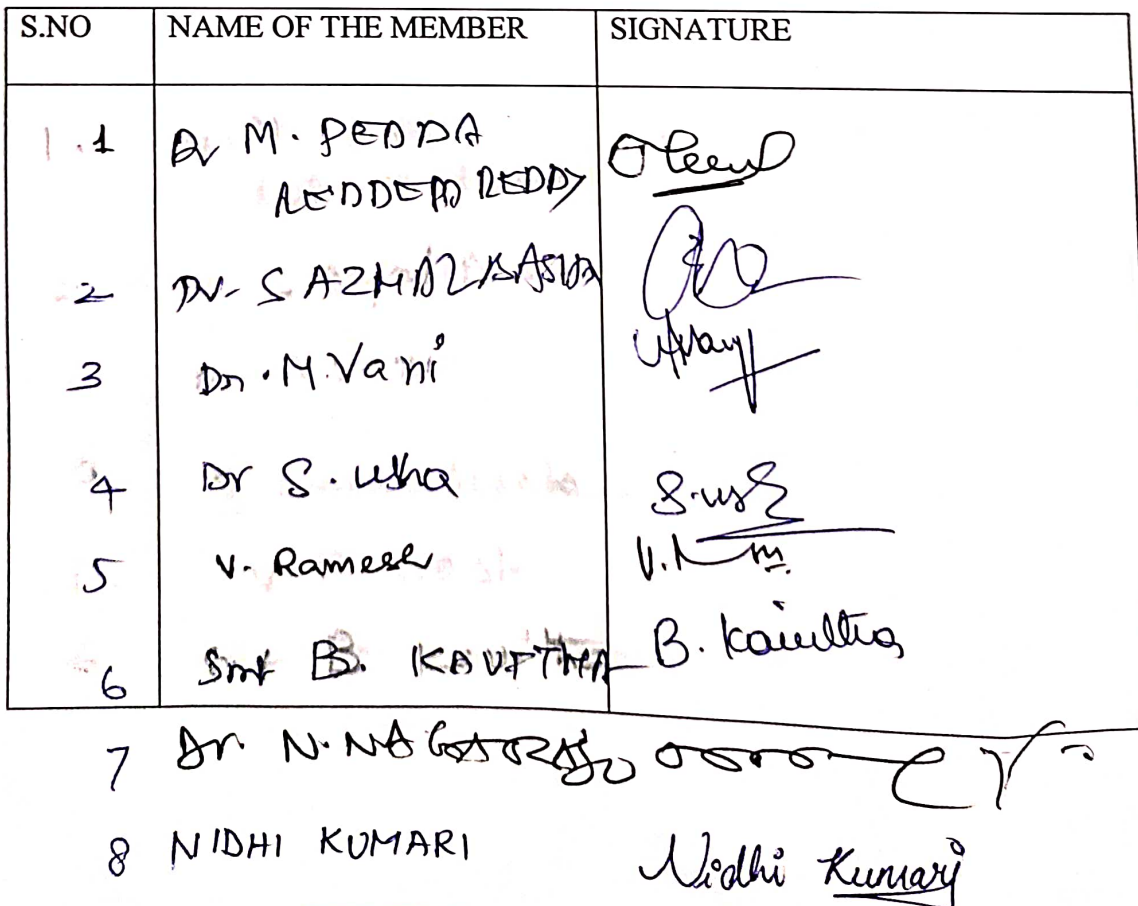 S.NO NAME OF THE MEMBER SIGNATURE
1 Dr M. PEDDA
REDDEPPA REDDY
2 Dr. S AZMAL BASHA
3 Dr. M. Vani
4 Dr S. Usha S. Ush
5 V. Ramesh
6 Smt B. B. 
7 Dr. N. NAGARAJU
8 NIDHI KUMARI Nidhi Kumari